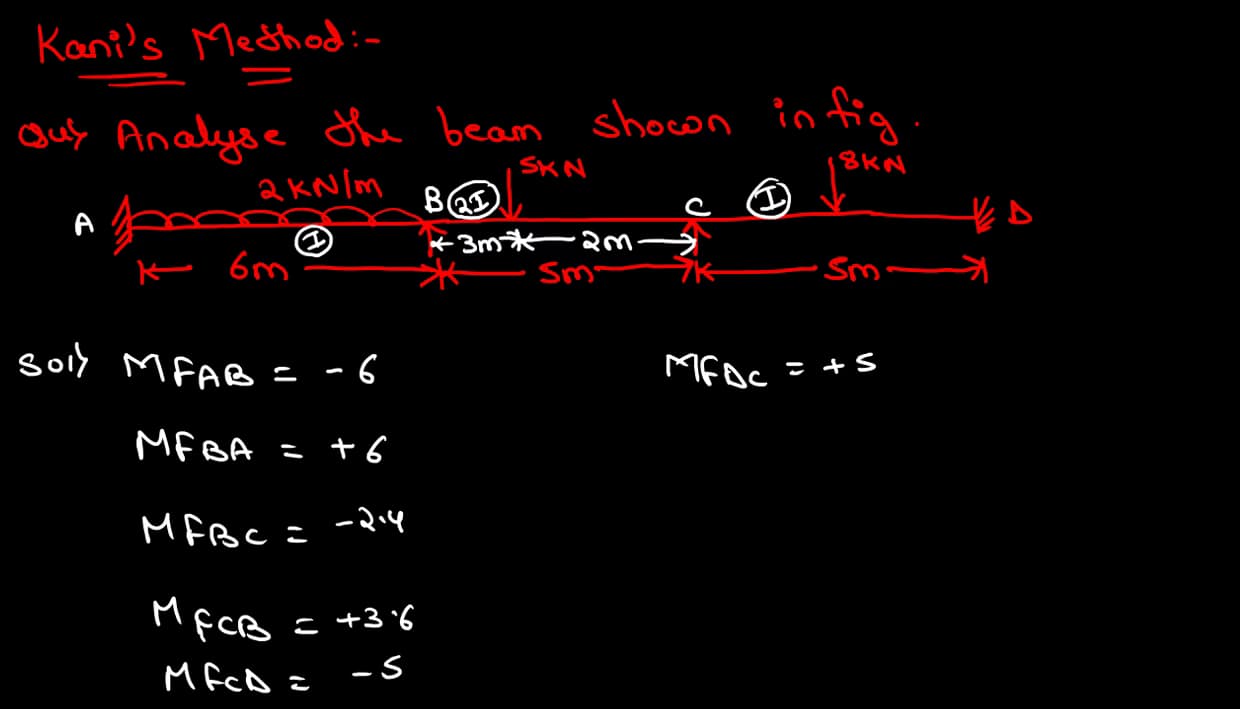 Kani's Method:-
Qus Analyse the beam shown in fig.
2 KN/m B 2I 5KN C I 8KN
A I 3m 2m D
6m 5m 5m
Sol MFAB = -6 MFDC = +5
MFBA = +6
MFBC = -2.4
MFCB = +3.6
MFCD = -5